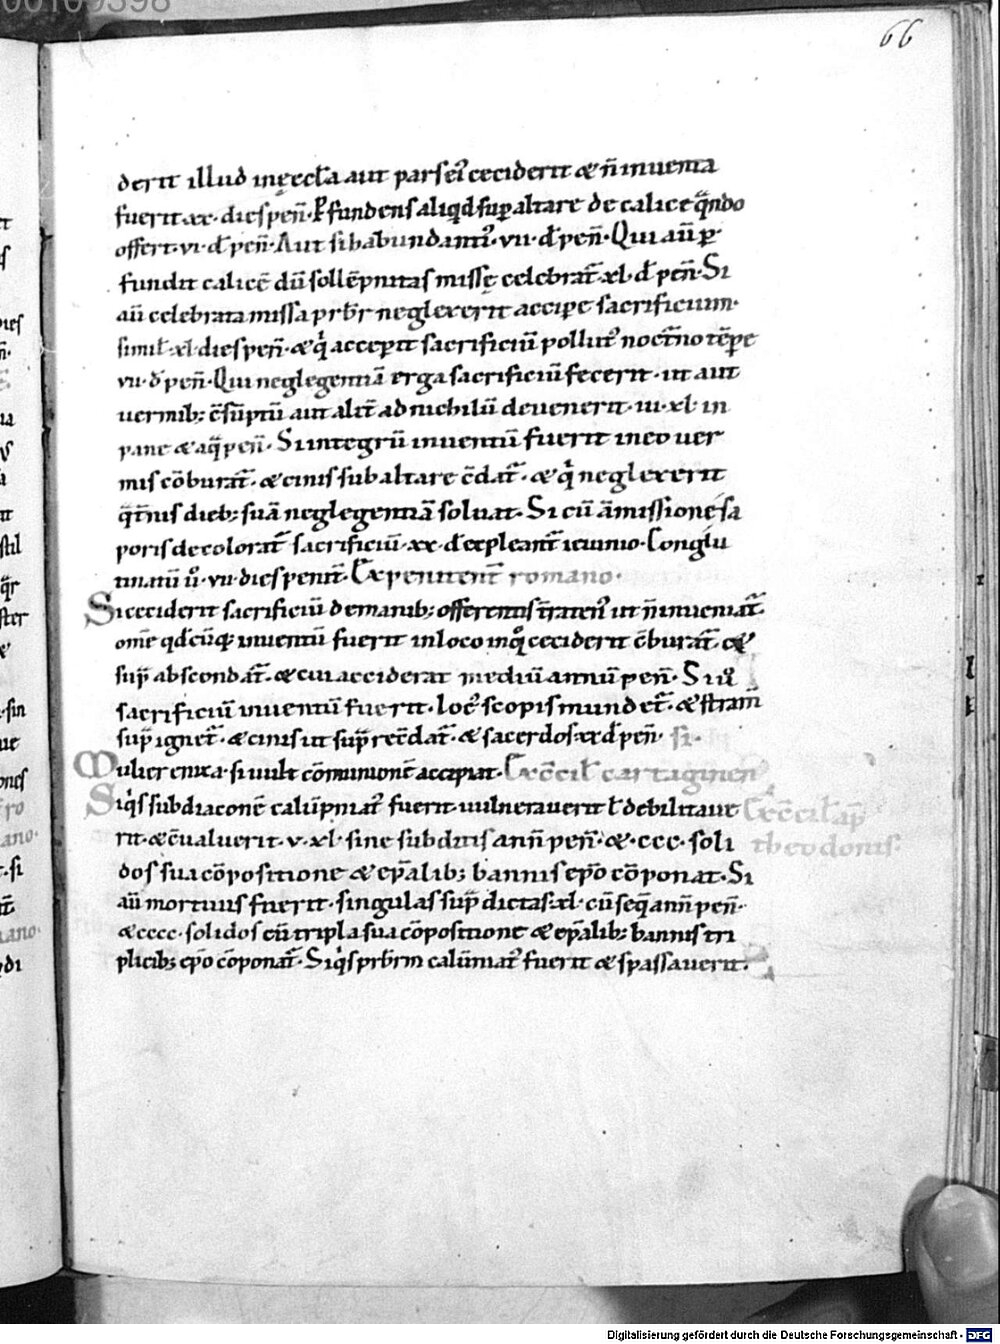 66
derit illud in ęecl̄a aut pars ei᷒ ceciderit & n̄ inuenta
fuerit xx· dies pen̄· P̱fundens aliqͥd sup̱ altare de calice q̄ndo
offert· vi· d̄ pen̄· Aut si habundanti᷒· vii· d̄ pen̄· Qui aū p̱
fundit calicē dū sollēpnitas missę celebrat᷑ xl· d̄ pen̄· Si
aū celebrata missa prb̄r neglexerit accipe sacrificium·
simil̄ xl· dies pen̄· & q̇ acceperit sacrificiū pollut᷒ noct᷑no tēpe
vii· d̄ pen̄· Qui neglegentiā erga sacrificiū fecerit· ut aut
uermib; c̄sūptū aut alit᷑ ad nichilū deuenerit· iii· xl· in
pane & aq̄ pen̄· Si integrū inuentū fuerit in eo uer
mis cōburat᷑· & cinis sub altare c̄dat᷑· & q̇ neglexerit
q̄t᷑nis dieb; suā neglegentiā soluat· Si cū āmissione sa
poris decolorat᷑ sacrificiū· xx· d̄ expleant᷑ ieiunio· Conglu
tinatū u̇· vii· dies penit̄· Ex penitent᷑ romano·
Si ceciderit sacrificiū de manib; offerentis t᷑raten᷒ ut n̄ inueniat᷑
om̄e qd̄cūq; inuentū fuerit in loco in q̊ ceciderit c̄burat᷑· &
sup̄ abscondat᷑· & cui acciderat mediū annū pen̄· Si u̇
sacrificiū inuentū fuerit· loc᷒ scopis mundet᷑· & stram̄
sup̄ ignet᷑· & cinis ut sup̄ recōdat᷑· & sacerdos xx d̄ pen̄· si·
Mulier enixa· si uult cōmunionē accipiat· Ex c̄cil̄ cartaginen̄
Siq̇s subdiaconē calūpniat᷒ fuerit· uulnerauerit l̄ debilitaue Ex c̄cil̄ ap̄
rit· & c̄ualuerit· v· xl· sine subditis ann̄ pen̄· &· ccc· soli theodonis:
dos sua cōpositione & ep̄alib; bannis ep̄o cōponat· Si
aū mortuus fuerit· singulas sup̄ dictas· xl· cū seq̄ ann̄ pen̄·
& cccc· solidos cū tripla sua cōpositione & ep̄alib; bannis tri
plicib; ep̄o cōponat᷑· Siq̇s prb̄rm calūniat᷒ fuerit & spassauerit·
Digitalisierung gefördert durch die Deutsche Forschungsgemeinschaft - DFG